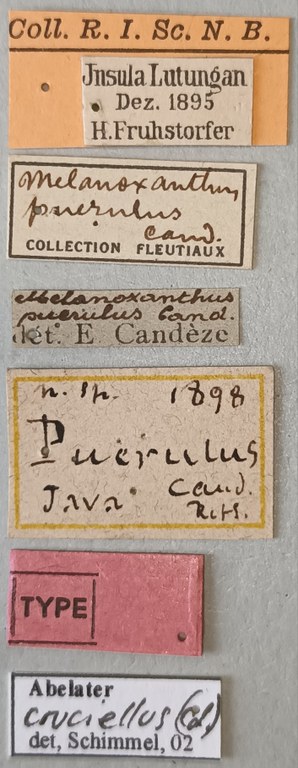 Coll. R. I. Sc. N. B.
Jnsula Lutungan
Dez. 1895
H. Fruhstorfer
Melanoxanthus
puerulus
Cand.
COLLECTION FLEUTIAUX
Melanoxanthus
puerulus Cand.
det. E. Candèze
n. sp. 1898
Puerulus
Java Cand.
TYPE
Abelater
cruciellus (Cd.)
det, Schimmel, 02